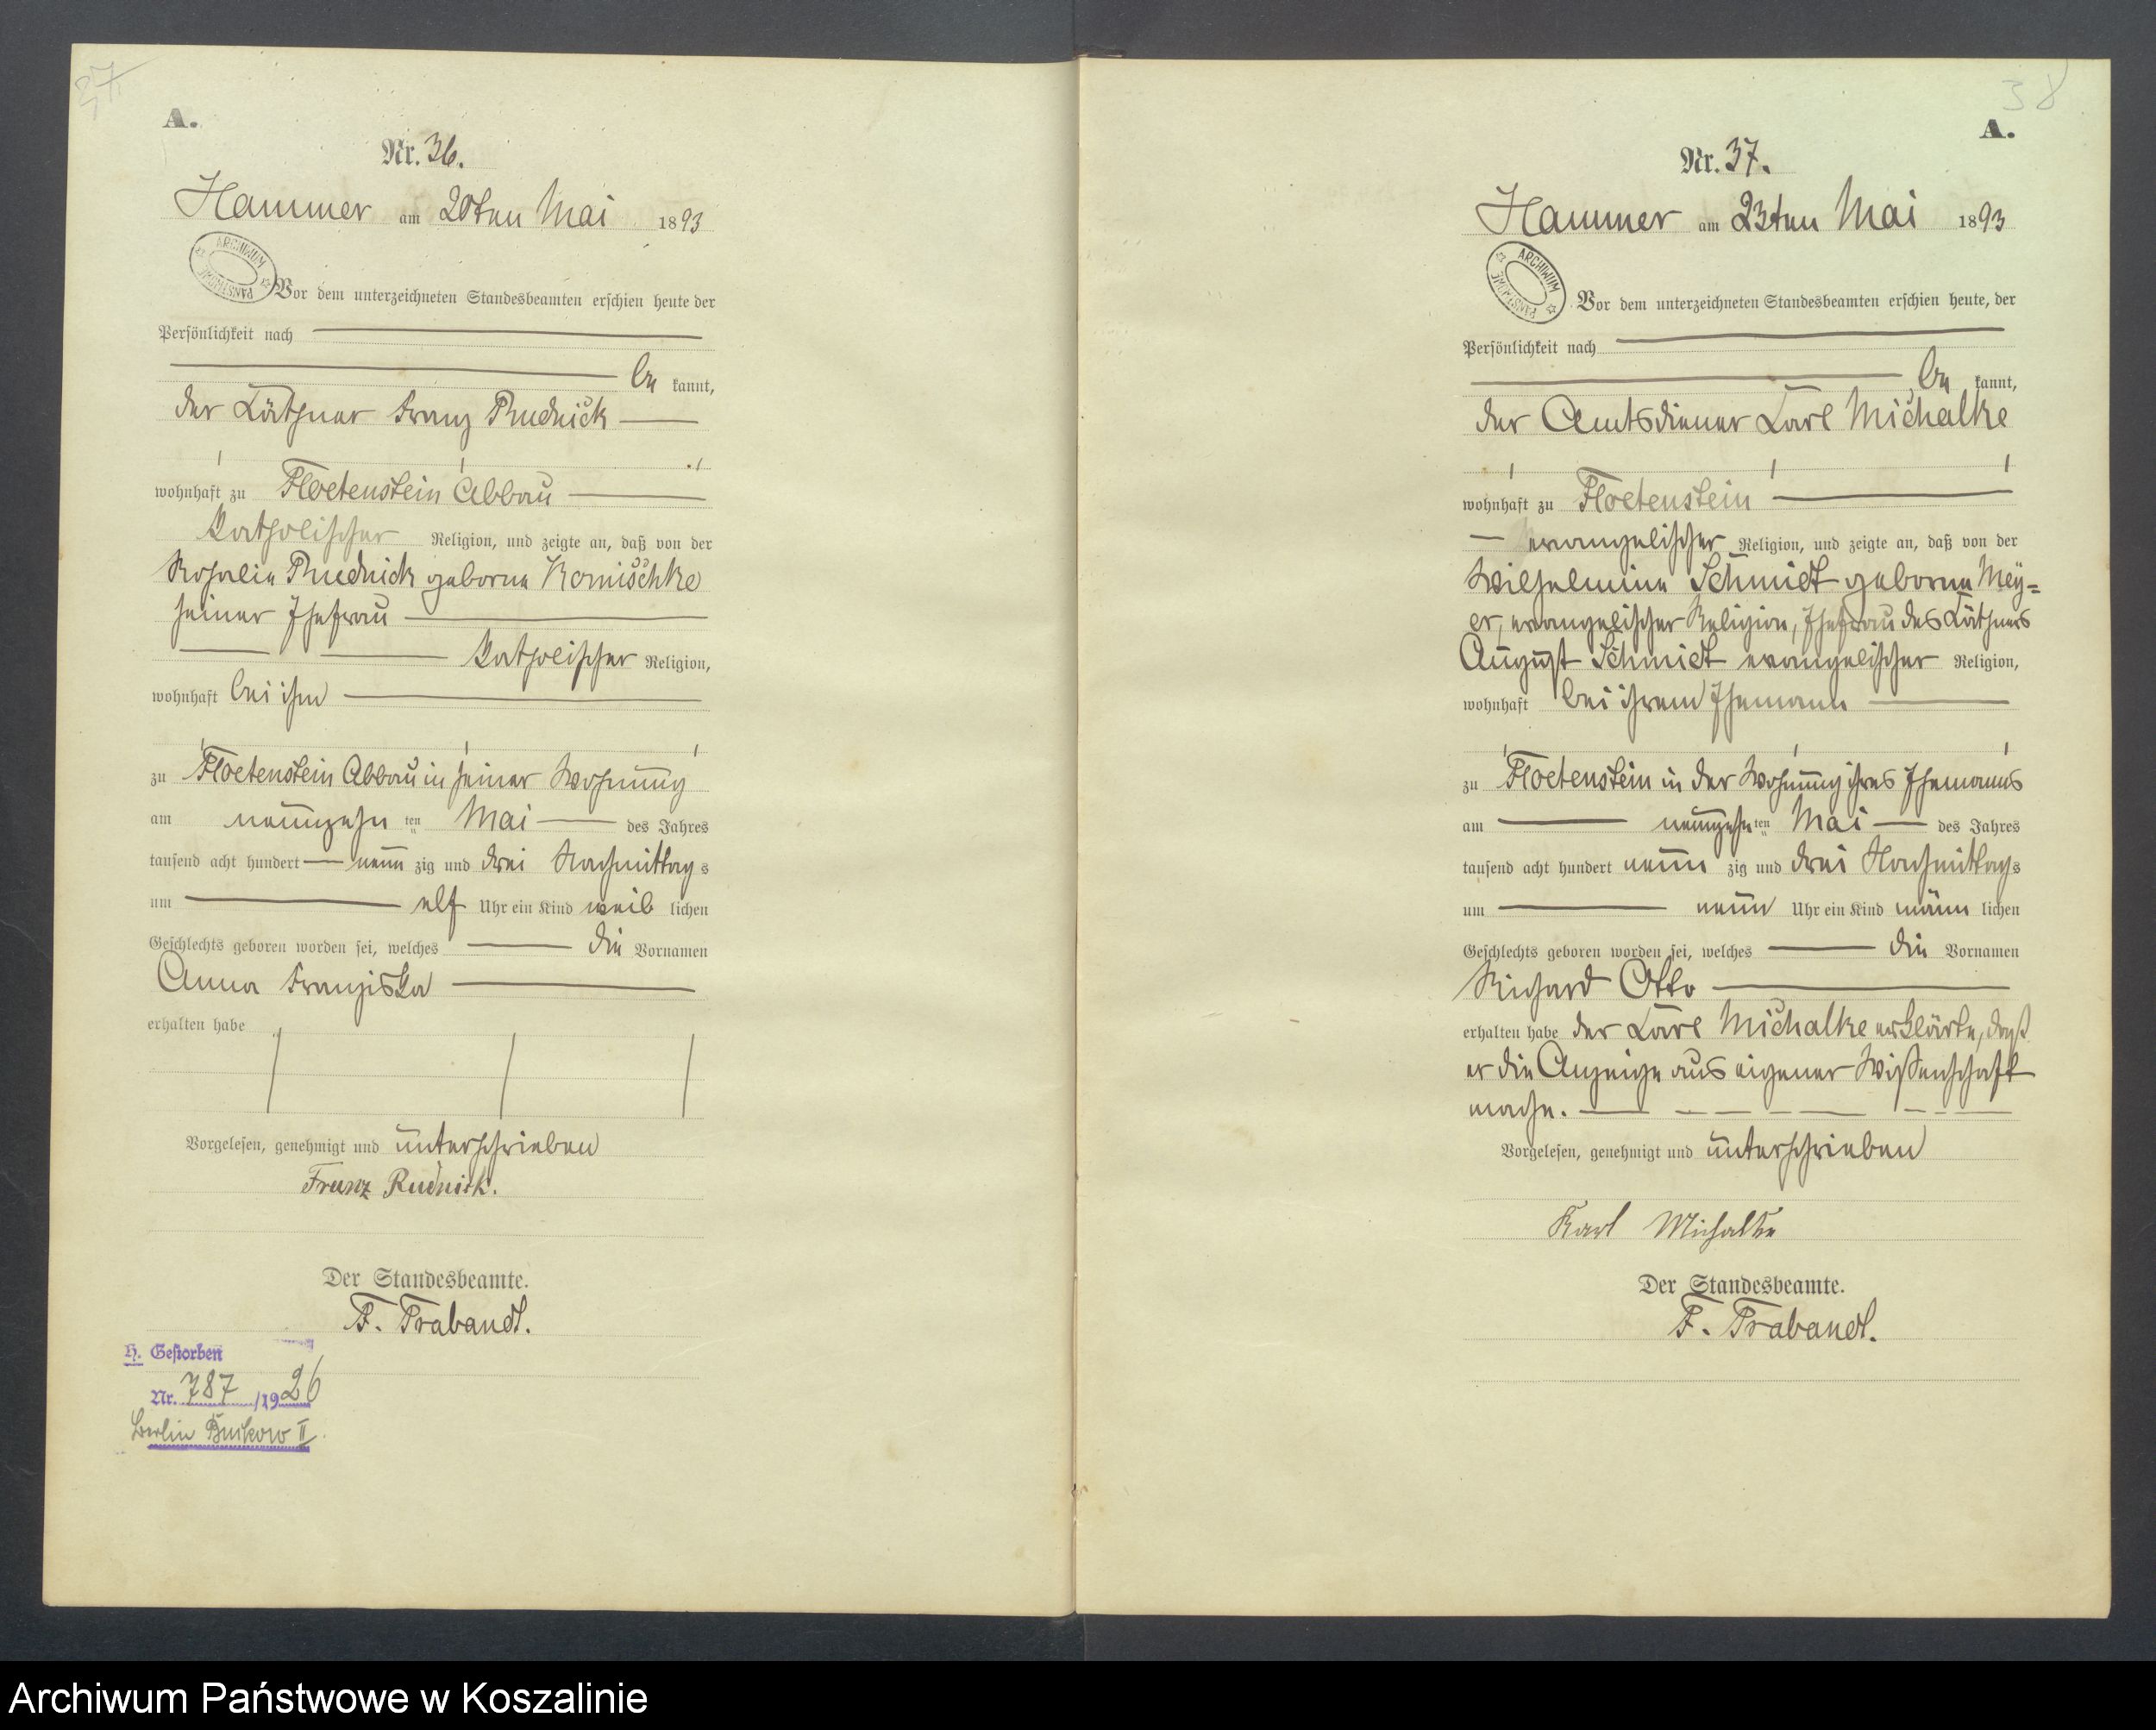 A.
Nr. 36.
Hammer am 20ten Mai 1893
ARCHIWUM PAŃSTWOWE
Vor dem unterzeichneten Standesbeamten erschien heute der
Persönlichkeit nach
be kannt,
der Käthner Franz Rudnick
wohnhaft zu Floetenstein Abbau
katholischer Religion, und zeigte an, daß von der
Rosalie Rudnick geborne Komischke
seiner Ehefrau
katholischer Religion,
wohnhaft bei ihm
zu Floetenstein Abbau in seiner Wohnung
am neunzehn ten Mai des Jahres
tausend acht hundert neun zig und drei Nachmittag s
um elf Uhr ein Kind weib lichen
Geschlechts geboren worden sei, welches die Vornamen
Anna Franziska
erhalten habe
Vorgelesen, genehmigt und unterschrieben
Franz Rudnick.
Der Standesbeamte.
F. Trabandt.
H. Gestorben
Nr. 787 /1926
Berlin II
38
A.
Nr. 37.
Hammer am 23ten Mai 1893
ARCHIWUM PAŃSTWOWE
Vor dem unterzeichneten Standesbeamten erschien heute, der
Persönlichkeit nach
be kannt,
der Amtsdiener Karl Michalke
wohnhaft zu Floetenstein
evangelischer Religion, und zeigte an, daß von der
Wilhelmine Schmidt geborne Mey=
er, evangelischer Religion, Ehefrau des Käthners
August Schmidt evangelischer Religion,
wohnhaft bei ihrem Ehemann
zu Floetenstein in der Wohnung ihres Ehemanns
am neunzehn ten Mai des Jahres
tausend acht hundert neun zig und drei Nachmittags
um neun Uhr ein Kind männ lichen
Geschlechts geboren worden sei, welches die Vornamen
Richard Otto
erhalten habe der Karl Michalke erklärte, daß
er die Anzeige aus eigener Wißenschaft
mache.
Vorgelesen, genehmigt und unterschrieben
Karl Michalke
Der Standesbeamte.
F. Trabandt.
Archiwum Państwowe w Koszalinie